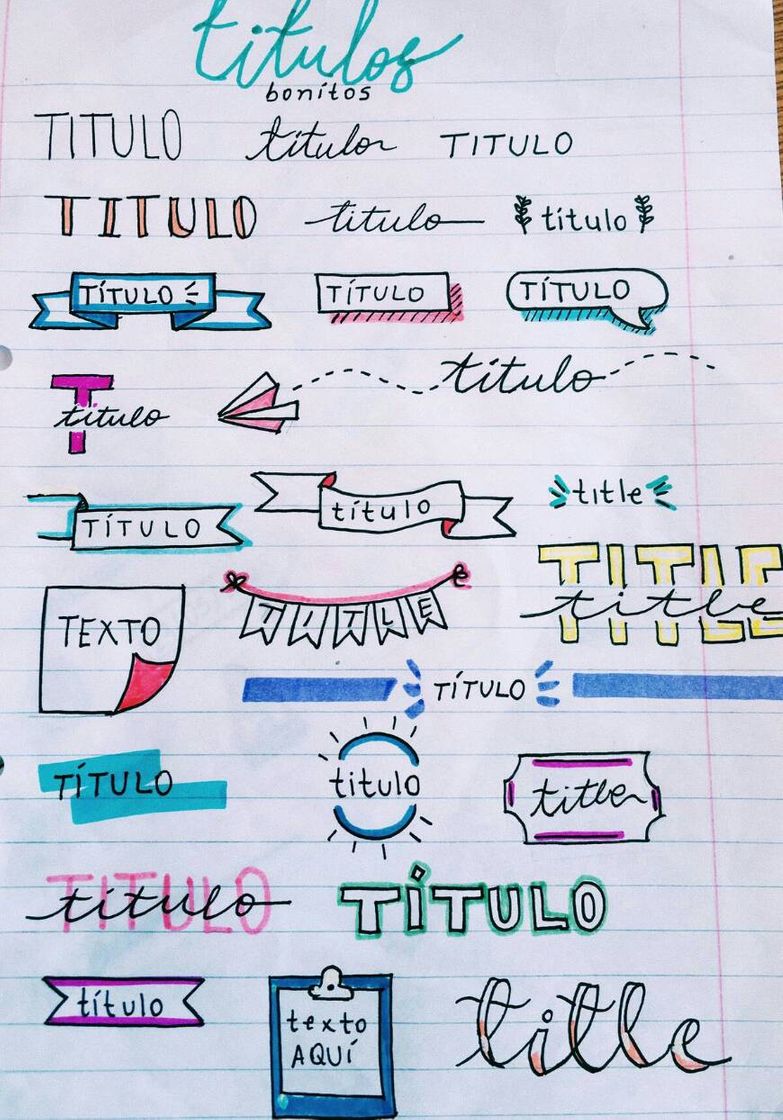 titulos
bonitos
TITULO títulor TITULO
TITULO titulo título
TÍTULO TÍTULO TÍTULO
título
T título
TÍTULO título title
TITLE title
TEXTO TITLE
TÍTULO
TÍTULO titulo title
TITULO título TÍTULO
título texto AQUÍ title